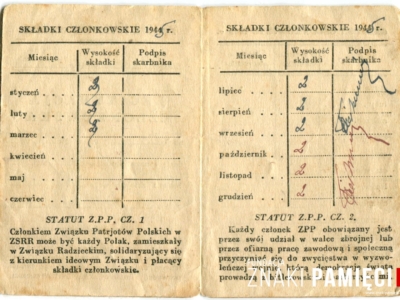 SKŁADKI CZŁONKOWSKIE 1945 r.
Miesiąc Wysokość składki Podpis skarbnika
styczeń
luty
marzec
kwiecień
maj
czerwiec
STATUT Z.P.P., CZ. 1
Członkiem Związku Patrjotów Polskich w
ZSRR może być każdy Polak, zamieszkały
w Związku Radzieckim, solidaryzujący się
z kierunkiem ideowym Związku i płacący
składki członkowskie.
SKŁADKI CZŁONKOWSKIE 1945 r.
Miesiąc Wysokość składki Podpis skarbnika
lipiec 2
sierpień 2
wrzesień 2
październik 2
listopad 2
grudzień 2
STATUT Z.P.P., CZ. 2,
Każdy członek ZPP obowiązany jest
przez swój udział w walce zbrojnej lub
przez ofiarną pracę zawodową i społeczną
przyczynić się do zwycięstwa w wyzwo-
leńczej wojnie, którą
prowadzą
ZNAKI PAMIĘCI